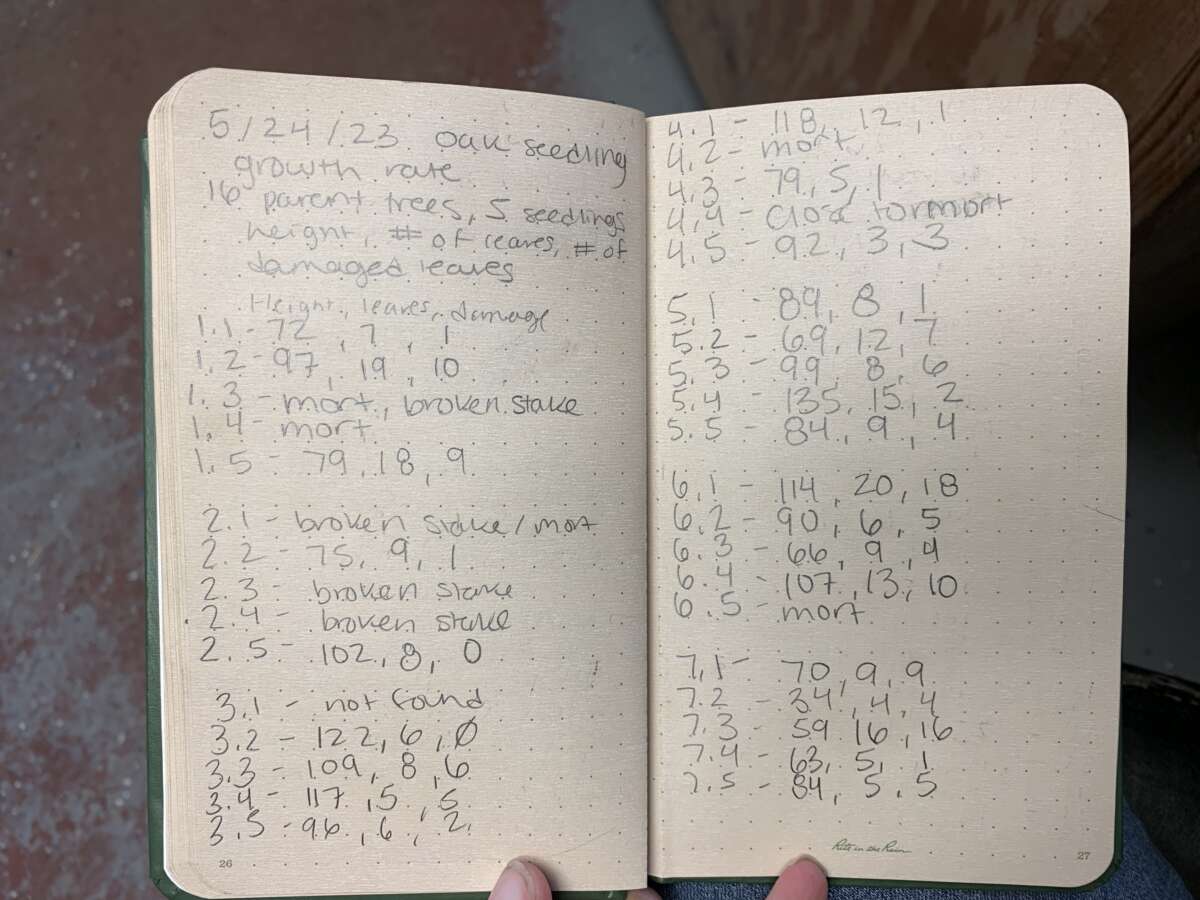 5/24/23 oak seedling
growth rate
16 parent trees, 5 seedlings
height, # of leaves, # of
damaged leaves
Height, leaves, damage
1.1 - 72, 7, 1
1.2 - 97, 19, 10
1.3 - mort, broken stake
1.4 - mort
1.5 - 79, 18, 9
2.1 - broken stake/mort
2.2 - 75, 9, 1
2.3 - broken stake
2.4 - broken stake
2.5 - 102, 8, 0
3.1 - not found
3.2 - 122, 6, Ø
3.3 - 109, 8, 6
3.4 - 117, 5, 5
3.5 - 96, 6, 2
26
4.1 - 118, 12, 1
4.2 - mort
4.3 - 79, 5, 1
4.4 - mort
4.5 - 92, 3, 3
5.1 - 89, 8, 1
5.2 - 69, 12, 7
5.3 - 99, 8, 6
5.4 - 135, 15, 2
5.5 - 84, 9, 4
6.1 - 114, 20, 18
6.2 - 90, 6, 5
6.3 - 66, 9, 4
6.4 - 107, 13, 10
6.5 - mort
7.1 - 70, 9, 9
7.2 - 34, 4, 4
7.3 - 59 16, 16
7.4 - 63, 5, 1
7.5 - 84, 5, 5
Rite in the Rain
27